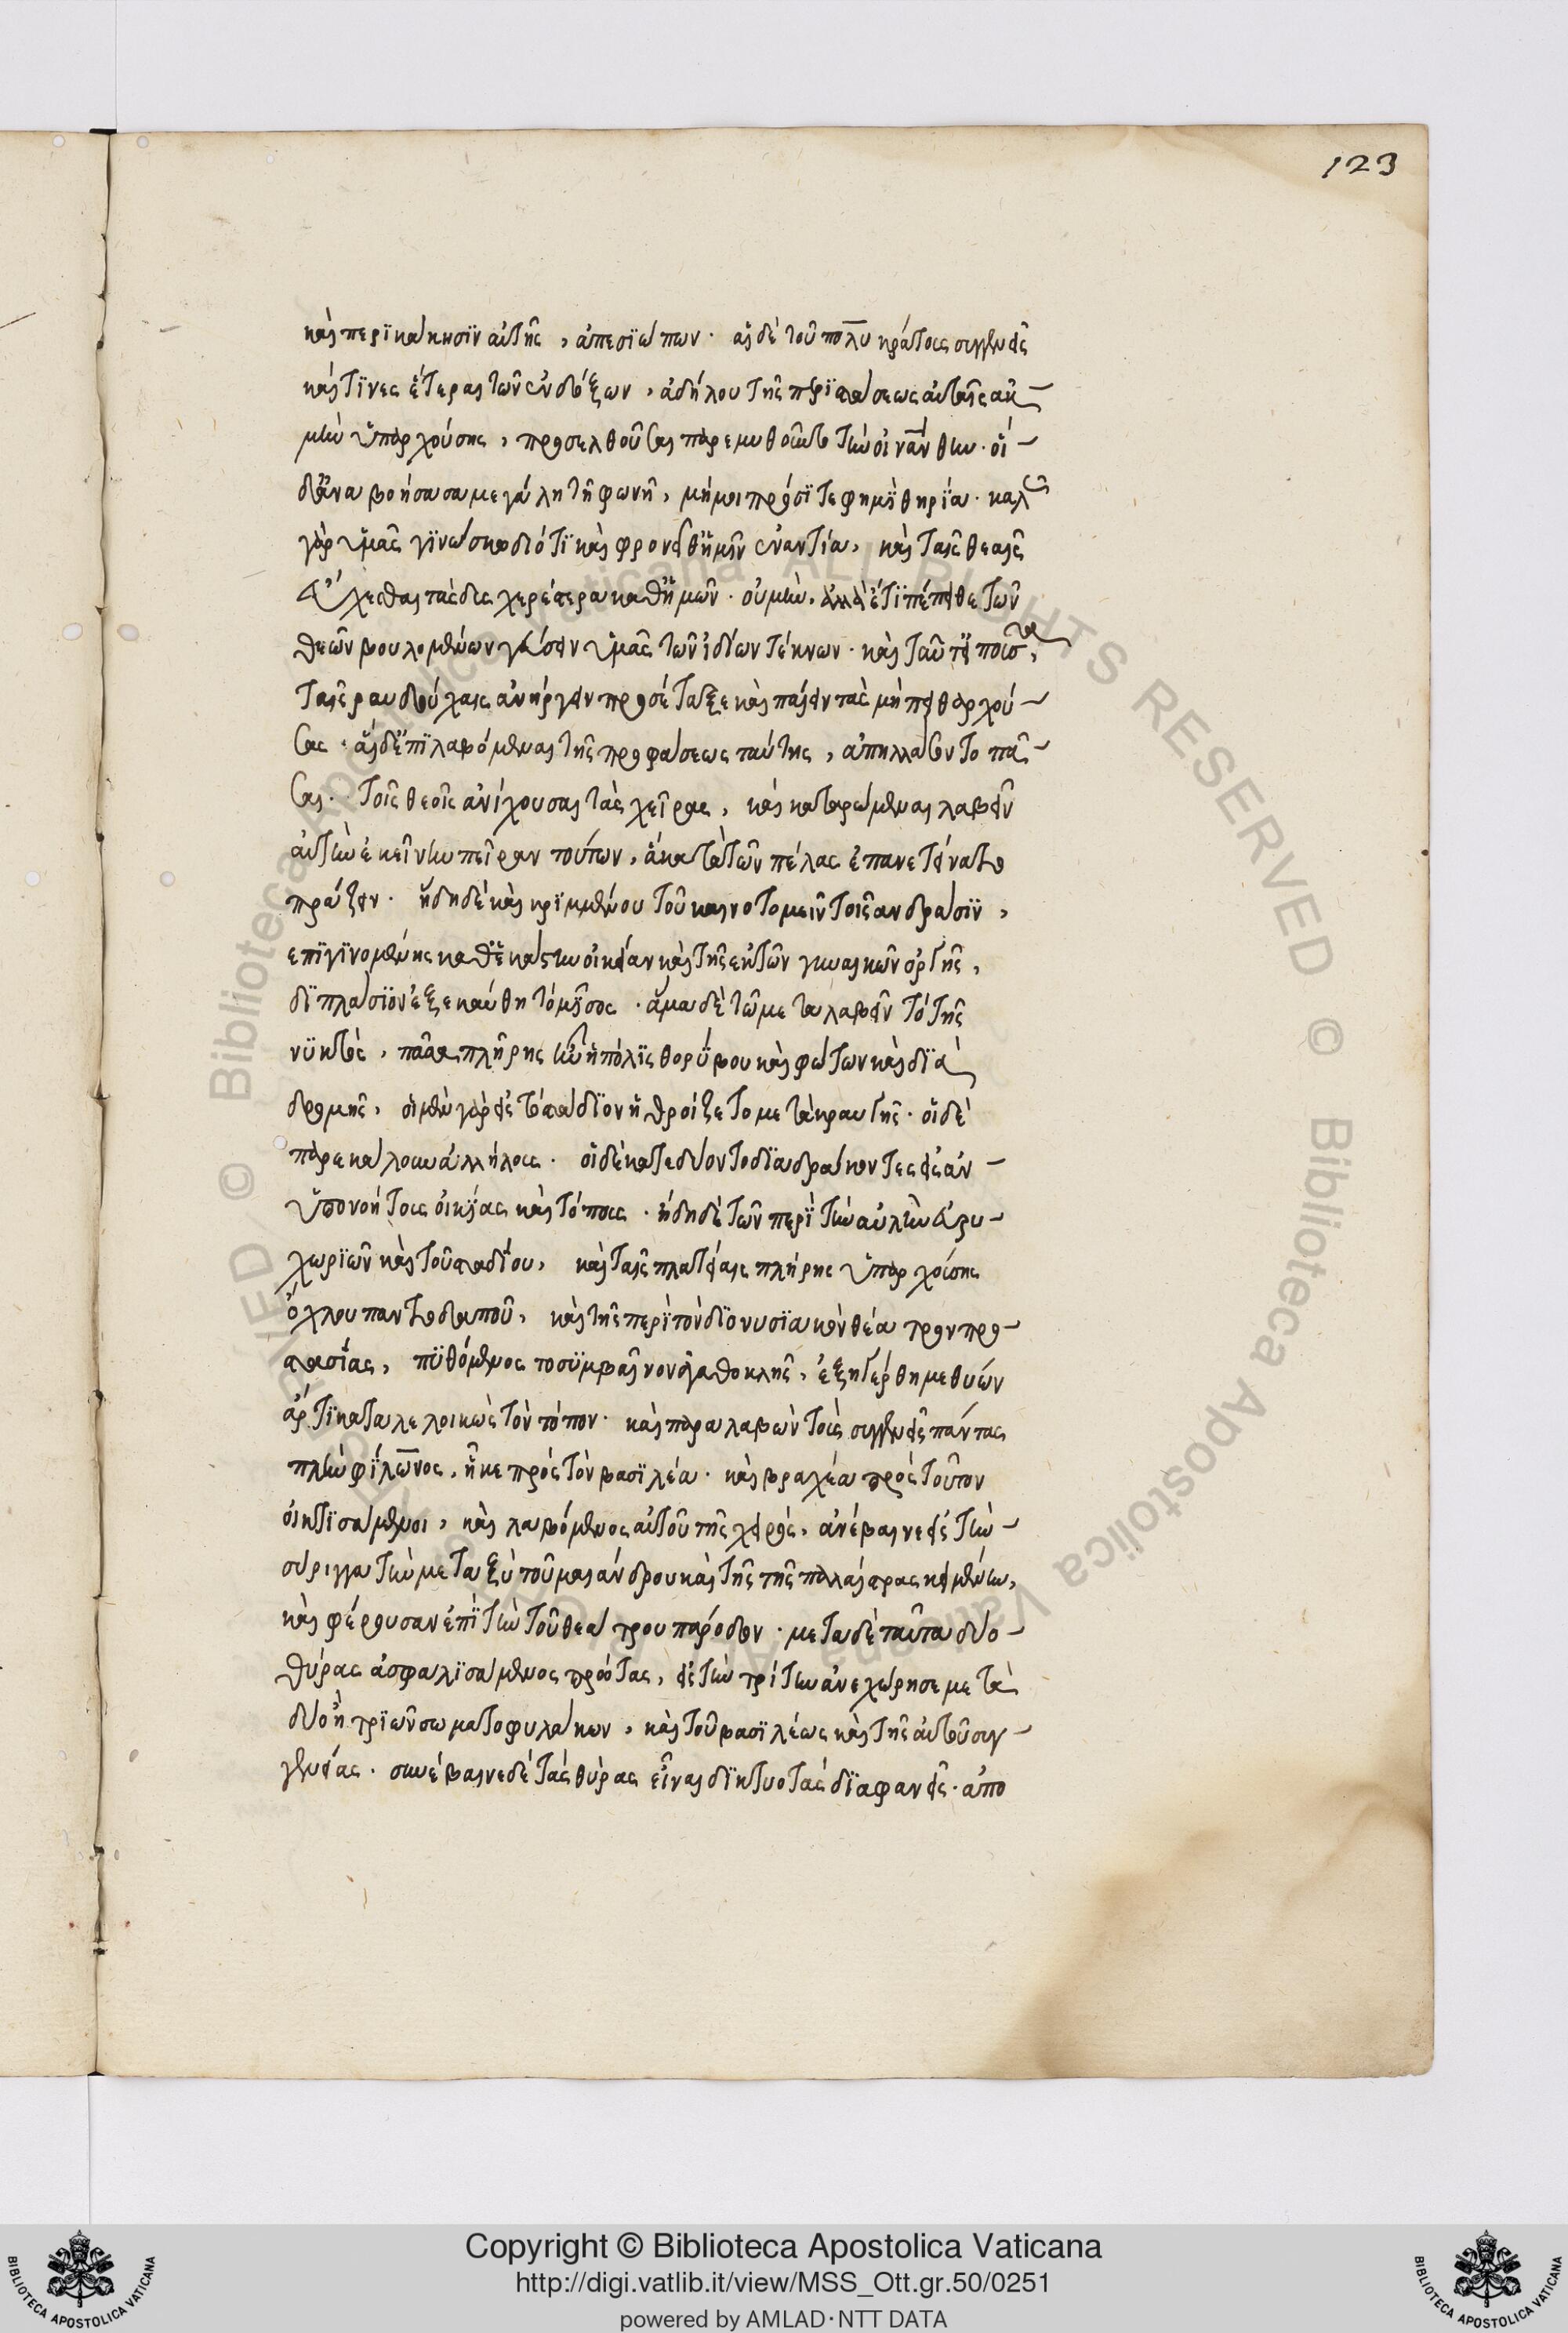 123
καὶ περϊκάκησϊν αὐτῆς, ἀπεσϊώπων· αἱ δὲ τοῦ πολυκράτους συγγενεῖς
καὶ τϊνες ἕτεραι τῶν ἐνδόξων, ἀδήλου τῆς περϊστάσεως αὐταῖς ἀκ-
μὴν ὑπαρχούσης, προσελθοῦσαι παρεμυθοῦντο τὴν οἰνάνθην· οἱ-
δ' ἀναβοήσασα μεγάλη τῆ φωνῆ, μή μοι πρόσϊτε φημϊ θηρία· καλῶς
γὰρ ὑμᾶς γϊνώσκω διότϊ καὶ φρονεῖθ' ἡμῖν ἐναντία, καὶ ταῖς θεαῖς
εὔχεσθαι τὰ δυσχερέστερα καθ' ἡμῶν· οὐ μὴν, ἀλλ' ἔτϊ πέποιθε τῶν
θεῶν βουλομένων γεύσειν ὑμᾶς τῶν ἰδίων τέκνων· καὶ ταῦτ' εἰποῦσα,
ταῖς ραυδούχαις ἀνήργειν προσέταξε καὶ παίειν τὰς μὴ πειθαρχού-
σας· αἱ δ' ἐπϊλαβόμεναι τῆς προφάσεως ταύτης, ἀπηλλάσσοντο πᾶ-
σαι· τοῖς θεοῖς ἀνίχουσαι τὰς χεῖρας, καὶ καταρώμεναι λαβεῖν
αὐτὴν ἐκεῖνην πεῖραν τούτων, ἃ κατὰ τῶν πέλας ἐπανετείνατο
πράξειν· ἤδη δὲ καὶ κρϊμμένου τοῦ καινοτομεῖν τοῖς ἀνδράσϊν,
επϊγϊνομένης καθ' ἑκάστην οἰκείαν καὶ τῆς ἐκ τῶν γυναικῶν ὀργῆς,
δϊπλάσϊον ἐξεκαύθη τὸ μῖσος· ἅμα δὲ τῶ μεταλαβεῖν τὸ τῆς
νϋκτὸς, πᾶσα πλήρης ἦν ἡ πόλϊς θορύβου καὶ φώτων καὶ δϊὰ
δρομῆς, οἱ μὲν γὰρ εἰς τὸ στάδϊον ἠθροίζετο μετὰ κραυγῆς· οἱ δὲ
παρεκάλουν ἀλλήλους· οἱ δὲ κατεδύοντο δϊαδράκοντες εἰς ἀν-
ϋπονοήτους οἰκίας καὶ τόπους· ἤδη δὲ τῶν περϊ τὴν αὐλὴν εὐρυ-
χωρϊῶν καὶ τοῦ σταδίου, καὶ ταῖς πλατείαις πλήρης ὑπαρχούσης
ὄχλου παντοδαποῦ, καὶ τῆς περϊ τὸν δϊονυσϊακὸν θέατρον προ-
στασίας, πϋθόμενος το σϋμβαῖνον ἀγαθοκλῆς, ἐξηγέρθη μεθυών
ἄρτϊ καταλελοικὼς τὸν τόπον· καὶ παραλαβὼν τοὺς συγγενεῖς πάντας
πλὴν φίλωνος, ἧκε πρὸς τὸν βασϊλέα· καὶ βραχέα πρὸς τοῦτον
οἰκτϊσάμενοι, καὶ λαβόμενος αὐτοῦ τῆς χειρὸς, ἀνέβαινε εἰς τὴν-
σύριγγα τὴν μεταξὺ τοῦ μαιάνδρου καὶ τῆς τῆς παλαίστρας κειμένην,
καὶ φέρουσαν ἐπϊ τὴν τοῦ θεάτρου πάροδον· μετα δὲ ταῦτα δύο-
θύρας ἀσφαλϊσάμενος πρώτας, εἰς τὴν τρίτην ἀνεχώρησε μετὰ
δύο ἢ τρϊῶν σωματοφυλάκων, καὶ τοῦ βασϊλέως καὶ τῆς αὐτοῦ συγ-
γενείας· συνέβαινε δὲ τὰς θύρας εἶναι δϊκτυοτὰς δϊαφανεῖς· ἀπο
Copyright © Biblioteca Apostolica Vaticana
http://digi.vatlib.it/view/MSS_Ott.gr.50/0251
powered by AMLAD·NTT DATA
BIBLIOTECA APOSTOLICA VATICANA
BIBLIOTECA APOSTOLICA VATICANA